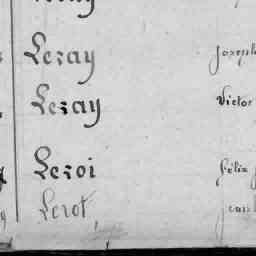 Lezay Joseph
Lezay Victor
Leroi Félix
Lerot